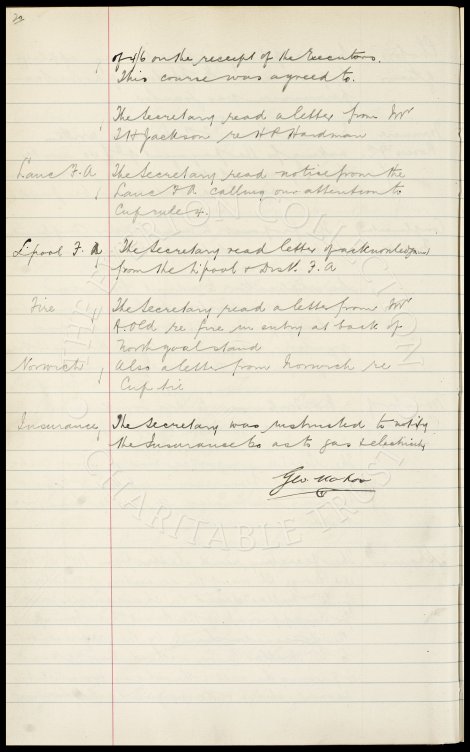 22
of 4/6 on the receipt of the Executors.
This course was agreed to.
The Secretary read a letter from Mr
Jackson re H P Hardman
Lanc F. A The Secretary read notice from the
Lanc F A. calling our attention to
Cup rule 4.
Lpool F. A The Secretary read letter of acknowledgment
from the L'pool & Dist. F. A
Fire The Secretary read a letter from Mr
Old re fire in entry at back of
North goal stand
Norwich Also a letter from Norwich re
Cup tie
Insurance The Secretary was instructed to notify
the Insurance Co as to gas & electricity
Geo. Mahon
THE EVERTON COLLECTION
CHARITABLE TRUST